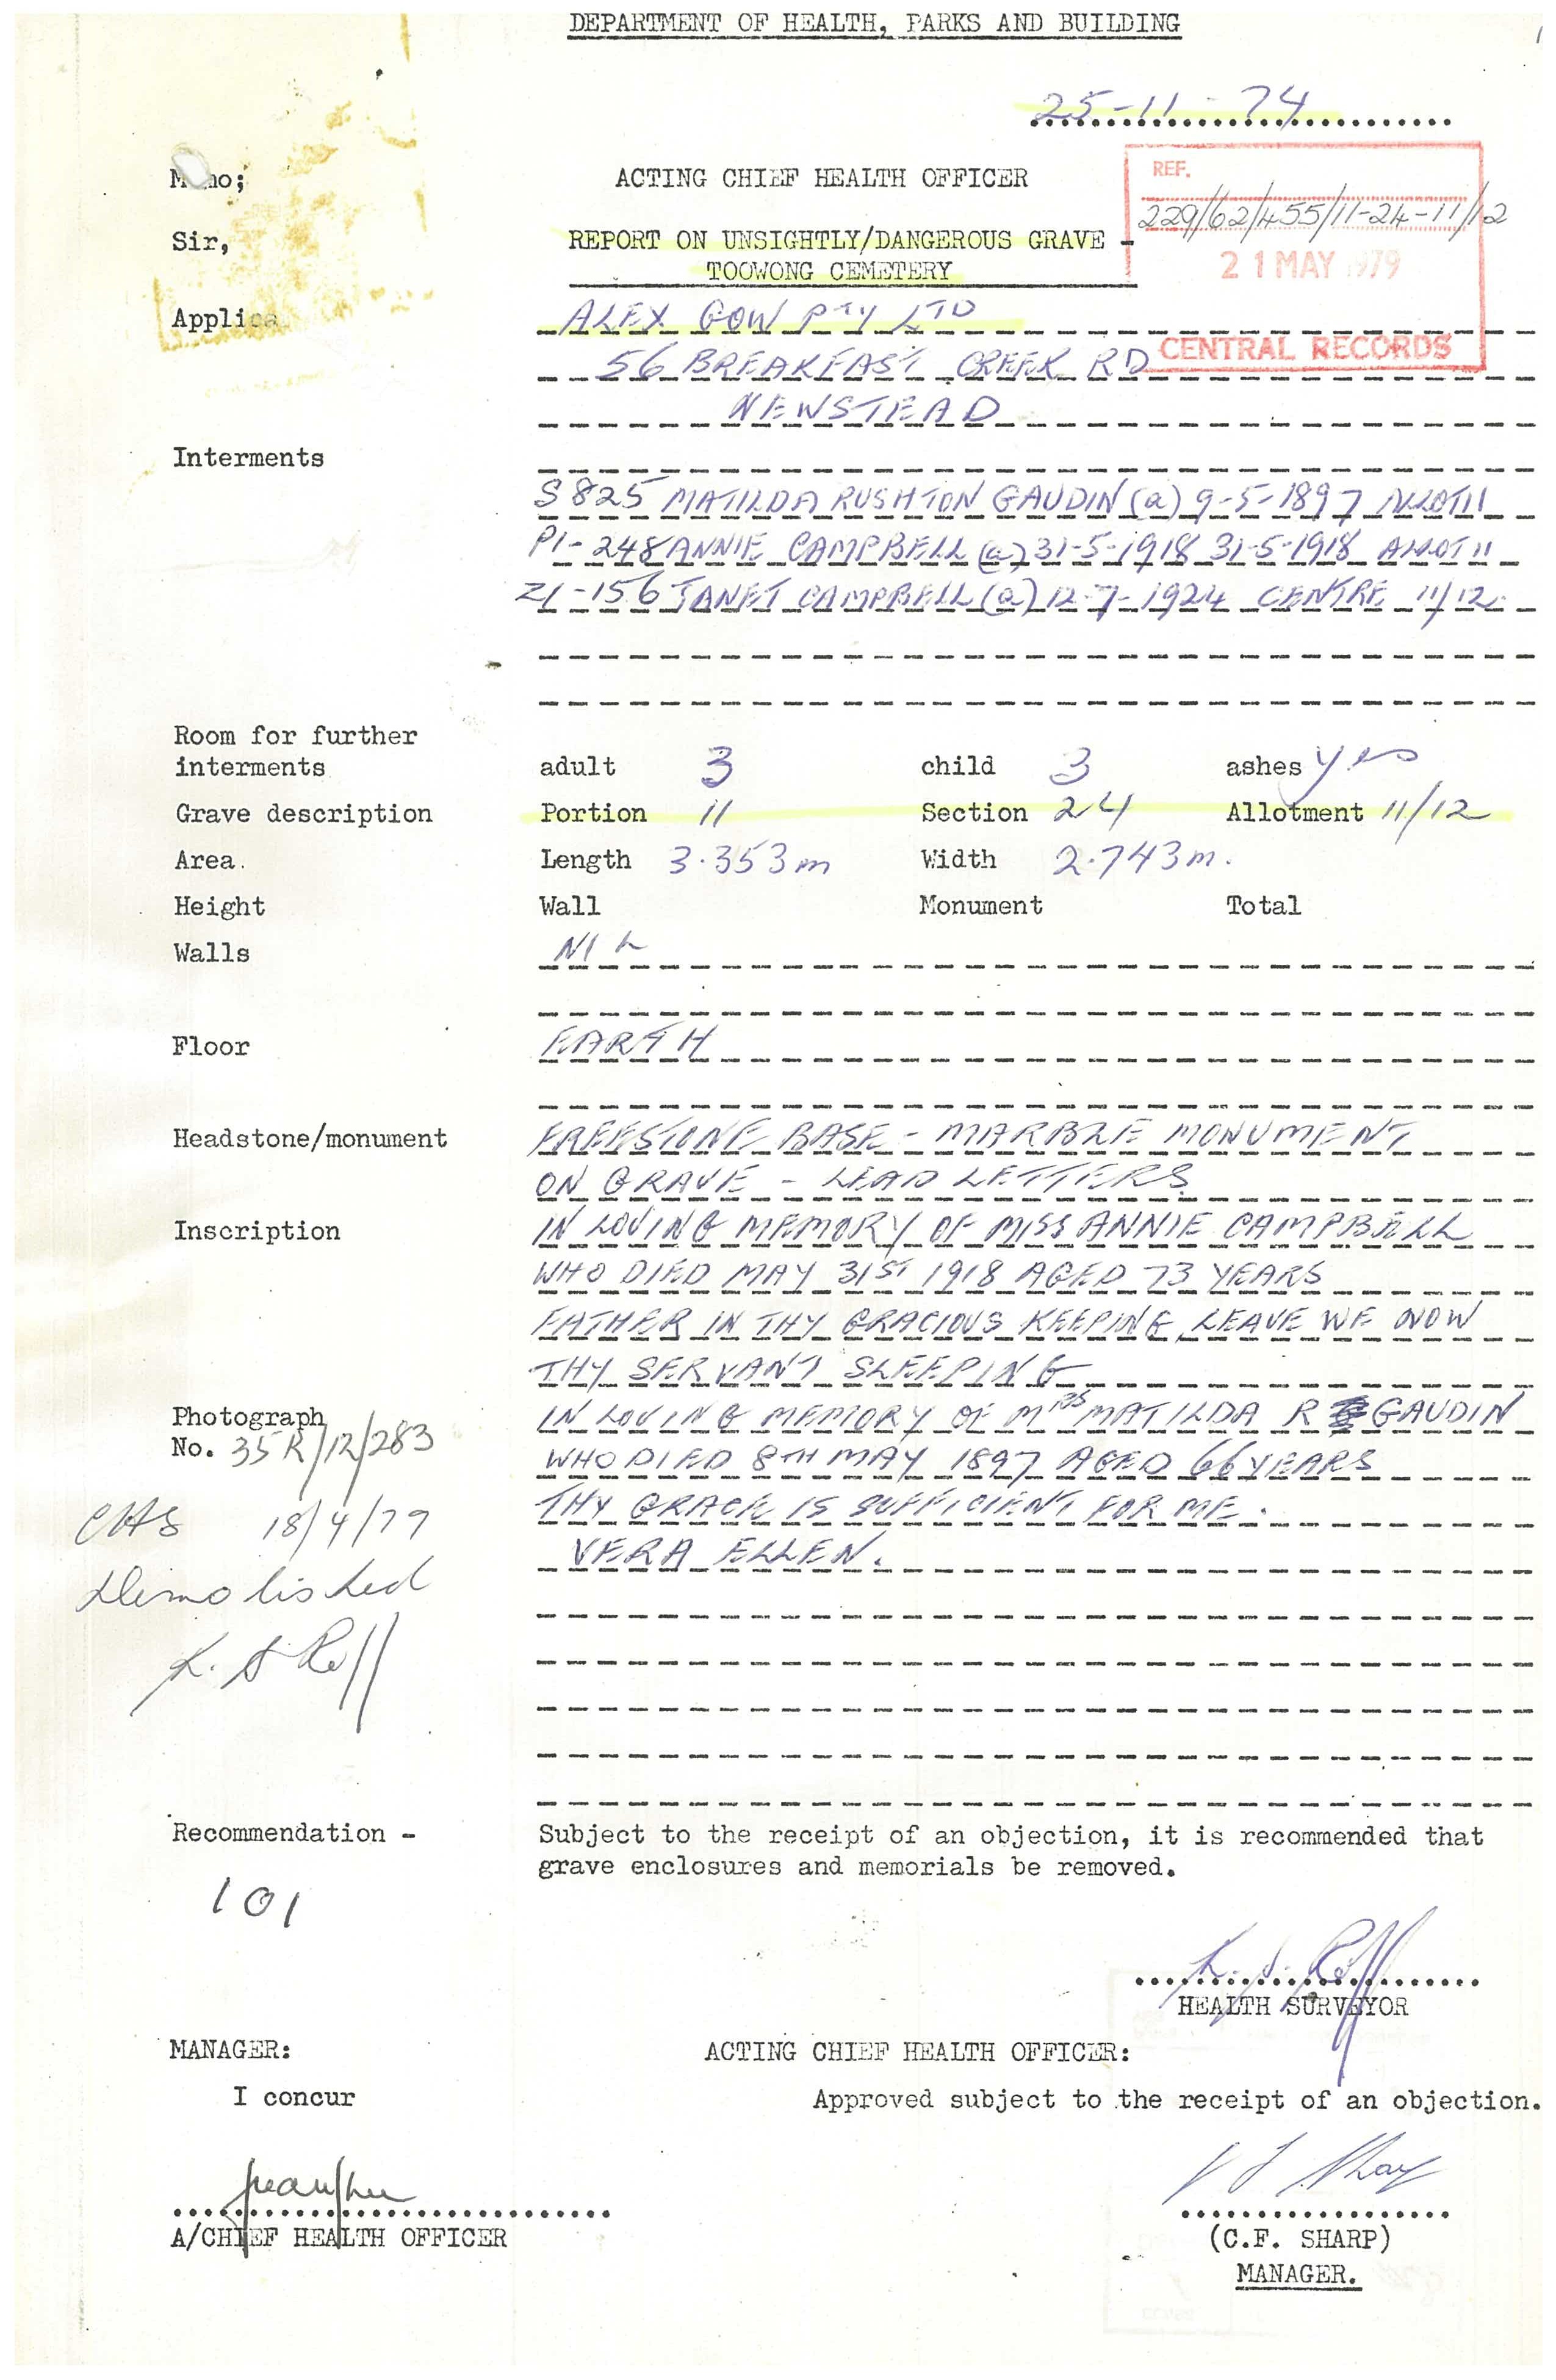 DEPARTMENT OF HEALTH, PARKS AND BUILDING
25-11-74
Sir,
ACTING CHIEF HEALTH OFFICER
REF.
229/62/455/11-24-11/12
21 MAY 1979
CENTRAL RECORDS
REPORT ON UNSIGHTLY/DANGEROUS GRAVE -
TOOWONG CEMETERY
ALEX GOW PTY LTD
56 BREAKFAST CREEK RD
NEWSTEAD
Interments
S825 MATILDA RUSHTON GAUDIN (a) 9-5-1897 ALLOT 11
P1-248 ANNIE CAMPBELL (a) 31-5-1918 31-5-1918 ALLOT 11
Z1-156 JANET CAMPBELL (a) 12-7-1924 CENTRE 11/12
Room for further
interments adult 3 child 3 ashes yes
Grave description Portion 11 Section 24 Allotment 11/12
Area. Length 3.353m Width 2.743m.
Height Wall Monument Total
Walls NIL
Floor EARTH
Headstone/monument FREESTONE BASE - MARBLE MONUMENT
ON GRAVE - LEAD LETTERS
Inscription IN LOVING MEMORY OF MISS ANNIE CAMPBELL
WHO DIED MAY 31ST 1918 AGED 73 YEARS
FATHER IN THY GRACIOUS KEEPING LEAVE WE NOW
THY SERVANT SLEEPING
IN LOVING MEMORY OF MRS MATILDA R GAUDIN
WHO DIED 8TH MAY 1897 AGED 66 YEARS
THY GRACE IS SUFFICIENT FOR ME.
VERA ELLEN.
Photograph
No. 35R/12/283
18/4/79
Demolished
K. S Roff
Recommendation - Subject to the receipt of an objection, it is recommended that
grave enclosures and memorials be removed.
101
K. S. Roff
HEALTH SURVEYOR
MANAGER: ACTING CHIEF HEALTH OFFICER:
I concur Approved subject to the receipt of an objection.
A/CHIEF HEALTH OFFICER (C.F. SHARP)
MANAGER.